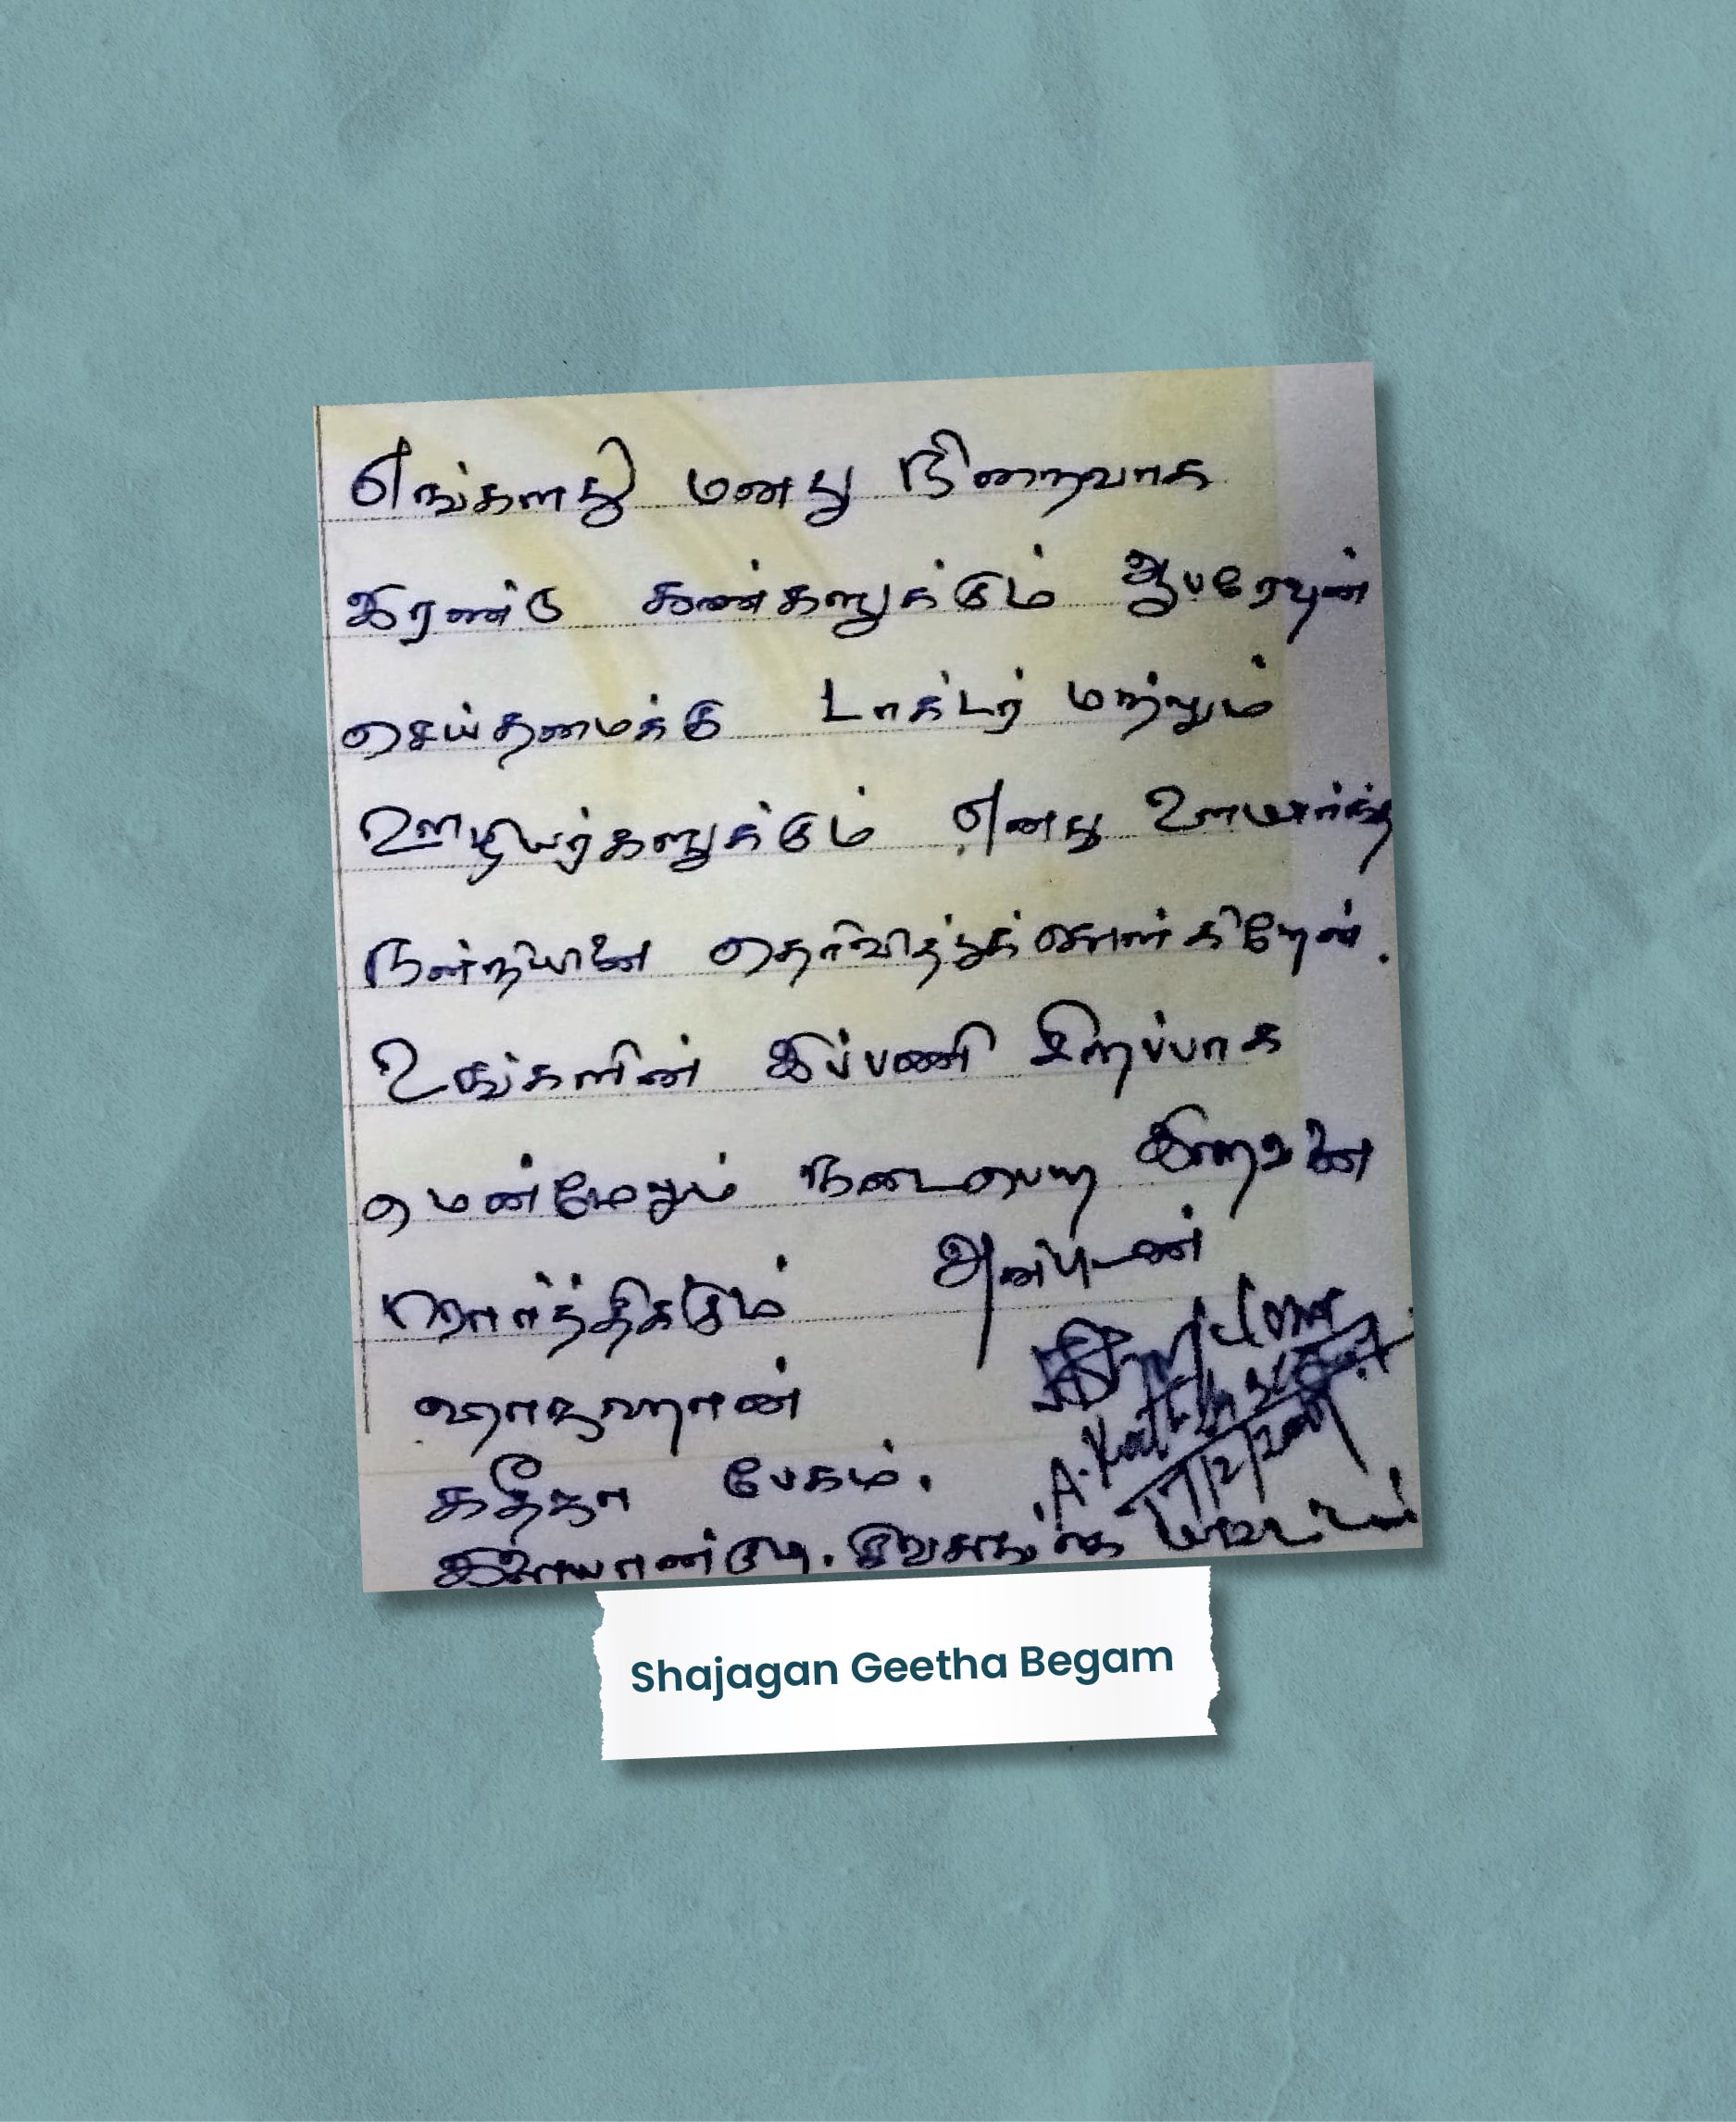 எங்களது மனது நிறைவாக
இரண்டு கண்களுக்கும் ஆபரேஷன்
செய்தமைக்கு டாக்டர் மற்றும்
ஊழியர்களுக்கும் எனது உளமார்ந்த
நன்றியினை தெரிவித்துக் கொள்கிறேன்.
உங்களின் இப்பணி சிறப்பாக
மென்மேலும் நடைபெற இறைவனை
அன்புடன்
ஷாஜஹான்
கதீஜா பேகம்.
இளையான்குடி.
Shajagan Geetha Begam